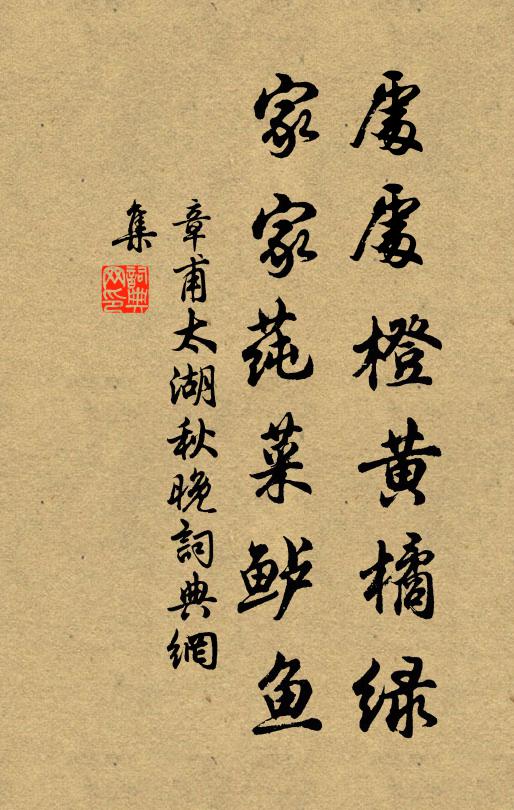 處處橙黄橘绿
家家莼菜鲈鱼
章甫太湖秋晚詞典網
集
詞典网印